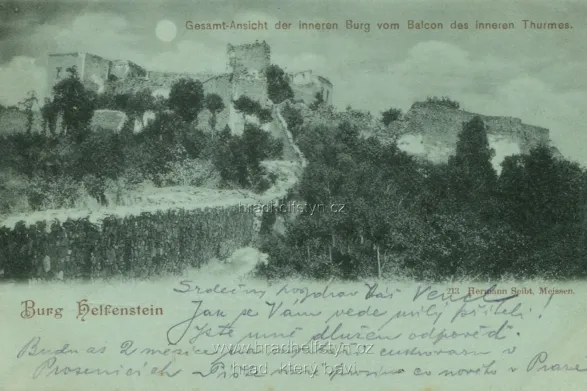 Gesamt-Ansicht der inneren Burg vom Balcon des inneren Thurmes.
hradhelfstyn.cz
713 Hermann Seibt, Meissen.
Burg Helfenstein
Srdečný pozdrav Váš
Jak se Vám vede milý příteli!
Jste mně dlužen odpověď.
www.hradhelfstyn.cz
hrad, který baví
Budu as 2 měsíce v
Prosenicích co nového v Praze